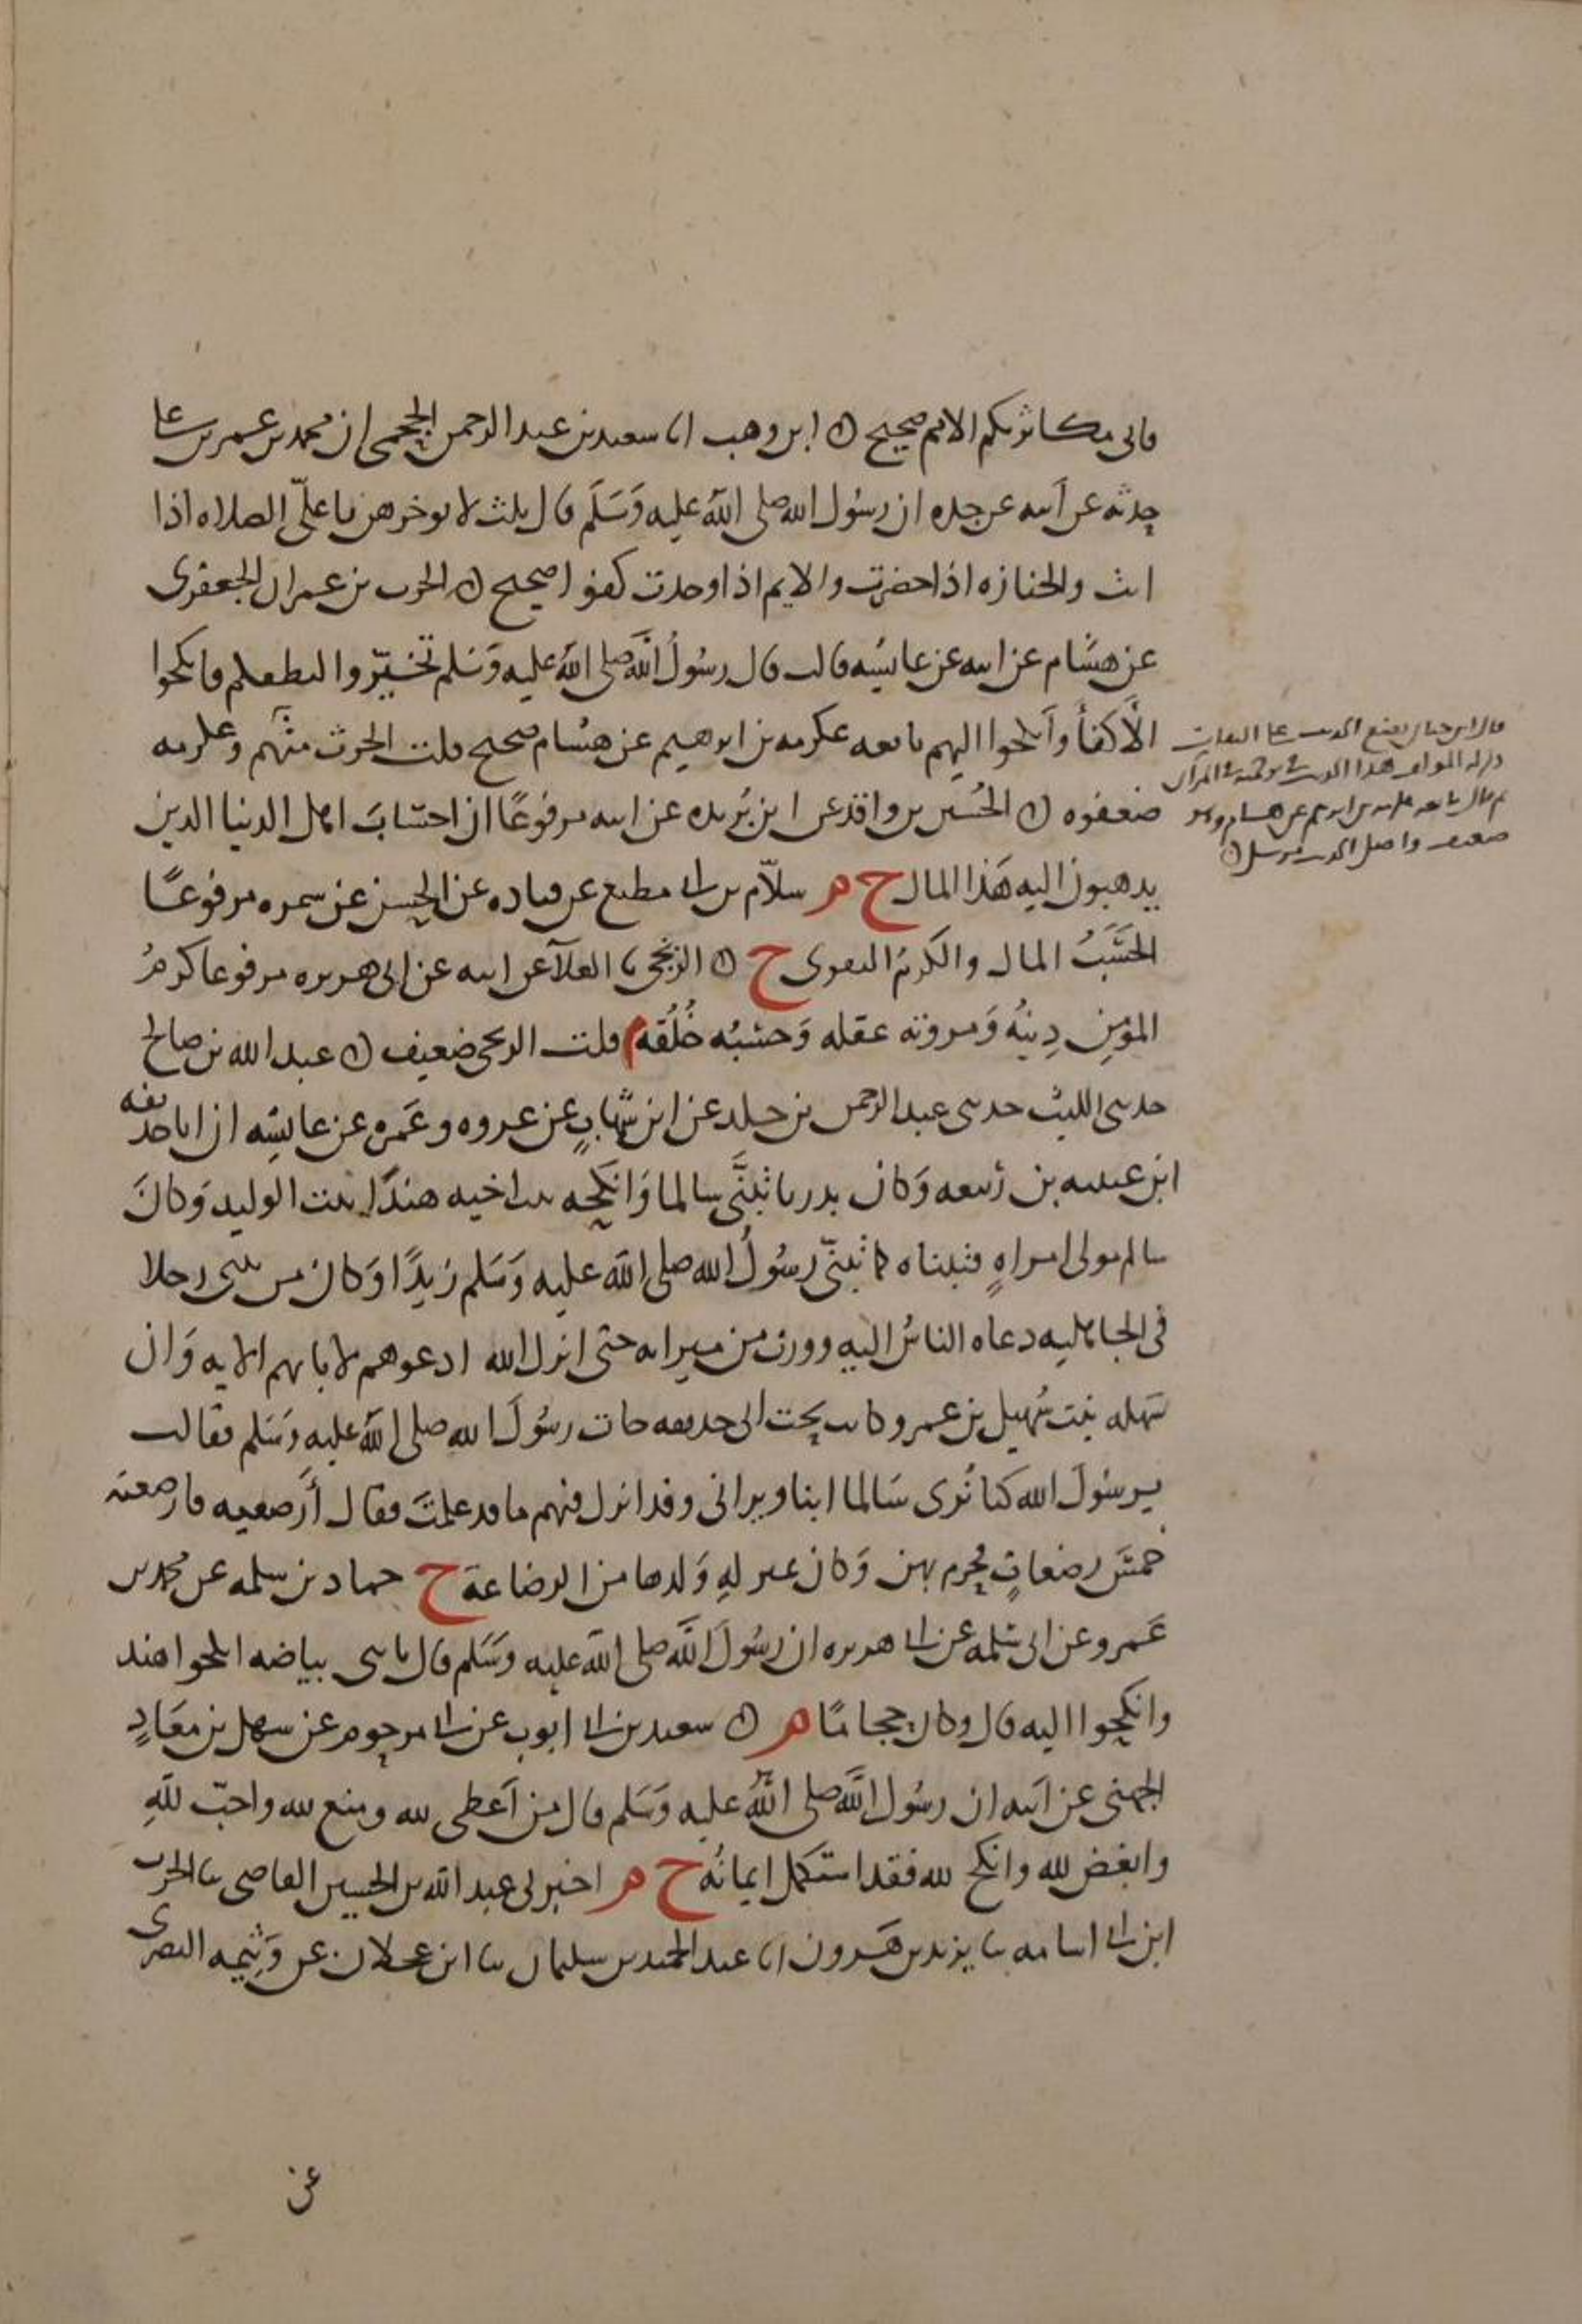 فاني مكاثر بكم الامم صحيح ابن وهب انا سعيد بن عبد الرحمن الجمحي ان محمد بن عمر بن علي
حدثه عن ابيه عن جده ان رسول الله صلى الله عليه وَسَلَّم قال ثلث لا توخرهن يا علي الصلاه اذا
اتت والجنازه اذا حضرت والايم اذا وجدت كفوا صحيح الحرث بن عمران الجعفري
عن هشام عن ابيه عن عايشه قالت قال رسُولُ الله صلى الله عليه وَسَلم تخيّروا لنطفكم فانكحوا
الأكفأ وأنكحوا اليهم تابعه عكرمه بن ابرهيم عن هشام صحيح قلت الحرث متهم وعكرمه
ضعفوه الحُسَين بن واقد عن ابن بُرَيده عن ابيه مرفوعًا ان احسَابَ اهل الدنيا الذين
يذهبون اليه هَذا المال خ م سلّام بن ابي مطيع عن قتاده عن الحسن عن سمره مرفوعًا
الحَسَبُ المال والكرمُ التقوى خ الزنجي نا العلآ عن ابيه عن ابي هريره مرفوعا كرمُ
المؤمِن دِينهُ وَمروته عقله وَحسَبُه خُلُقه م قلت الزنجي ضعيف عبد الله بن صالح
حدثني الليث حدثني عبد الرحمن بن خلد عن ابن شهابٍ عن عروه وعَمره عن عايشه ان ابا حذيفه
ابن عتبه بن ربيعه وَكان بدريا تبنَّى سالما وَانكحه بنت اخيه هندًا بنت الوليد وَكانَ
سالم مولى امراهٍ فتبناه كما تبنّى رسُولُ الله صلى الله عليه وَسَلم زيدًا وَكان من تبنى رجلا
في الجاهليه دعاه الناسُ اليه وورث من ميراثه حتى انزل الله ادعوهم لابايهم الايه وَان
سَهله بنت سُهيل بن عمرو كانت تحت ابي حذيفه جات رسُولَ الله صلى الله عليه وَسَلم فقالت
يرسُولَ الله كنا نُرى سَالما ابنا ويراني وقد انزل فيهم ما قد علمتَ فقال أرضعيه فارضعته
خمسَ رضعاتٍ فحرم بهن وَكان بمنزلهِ وَلدها من الرضاعة خ حماد بن سلمه عن محمد بن
عَمرو عن ابي سَلمه عن ابي هريره ان رسُولَ الله صلى الله عليه وَسَلم قال يا بني بياضه انكحوا هند
وانكحوا اليه قال وكان حجامًا م سعيد بن ابي ايوب عن ابي مرحوم عن سهل بن معَاذٍ
الجهني عن أبيه ان رسُول الله صلى الله عليه وَسَلم قال من أعطى لله ومنع لله واحبّ للهِ
وابغض لله وانكح لله فقد استكمل ايمانُه خ م اخبرني عبد الله بن الحسين القاضي نا الحرث
ابن ابي اسامه نا يزيد بن هَرون انا عبد الحميد بن سليمان نا ابن عجلان عن وَثيمه النصري
عن
قال ابن حبان يضع الحديث على الثقات
هذا الحديث في ترجمته في الميزان
ثم قال تابعه عكرمه بن ابرهيم عن هشام وهو
ضعيف واصل الحديث مرسل